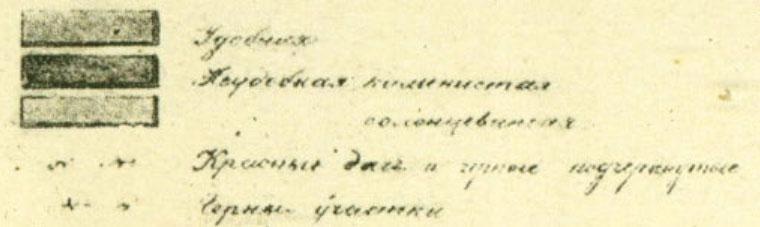 Удобная
Неудобная каменистая
солонцеватая
Красный дач и черные подчеркнутые
Черный участки